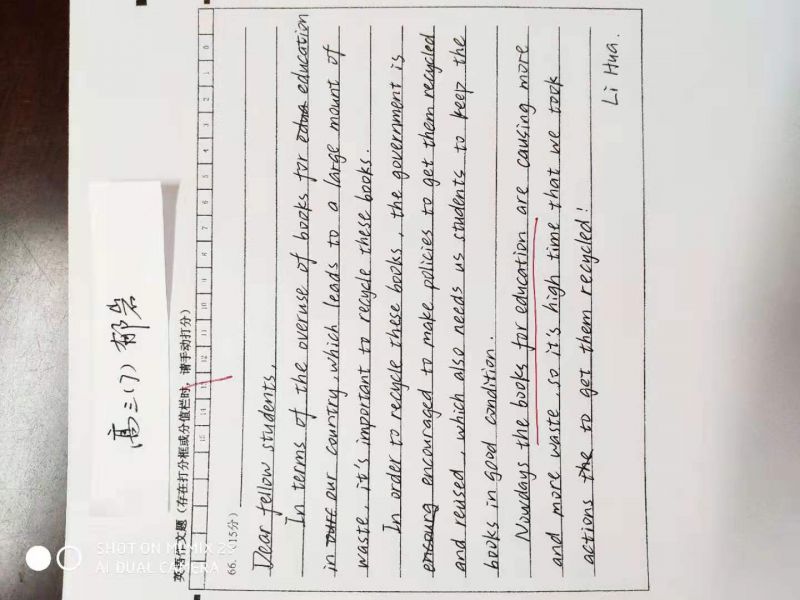 高三(7) 郁岩
英语作文题(存在打分框或分值栏时,请手动打分)
15 14 13 12 11 10 9 8 7 6 5 4 3 2 1 0
66.(15分)
Dear fellow students,
In terms of the overuse of books for education
in our country, which leads to a large mount of
waste, it's important to recycle these books.
In order to recycle these books, the government is
encouraged to make policies to get them recycled
and reused, which also needs us students to keep the
books in good condition.
Nowdays the books for education are causing more
and more waste, so it's high time that we took
actions to get them recycled!
Li Hua.
SHOT ON MI MIX 2S
AI DUAL CAMERA